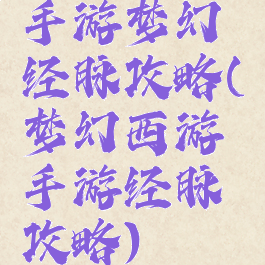 手游梦幻
经脉攻略(
梦幻西游
手游经脉
攻略)